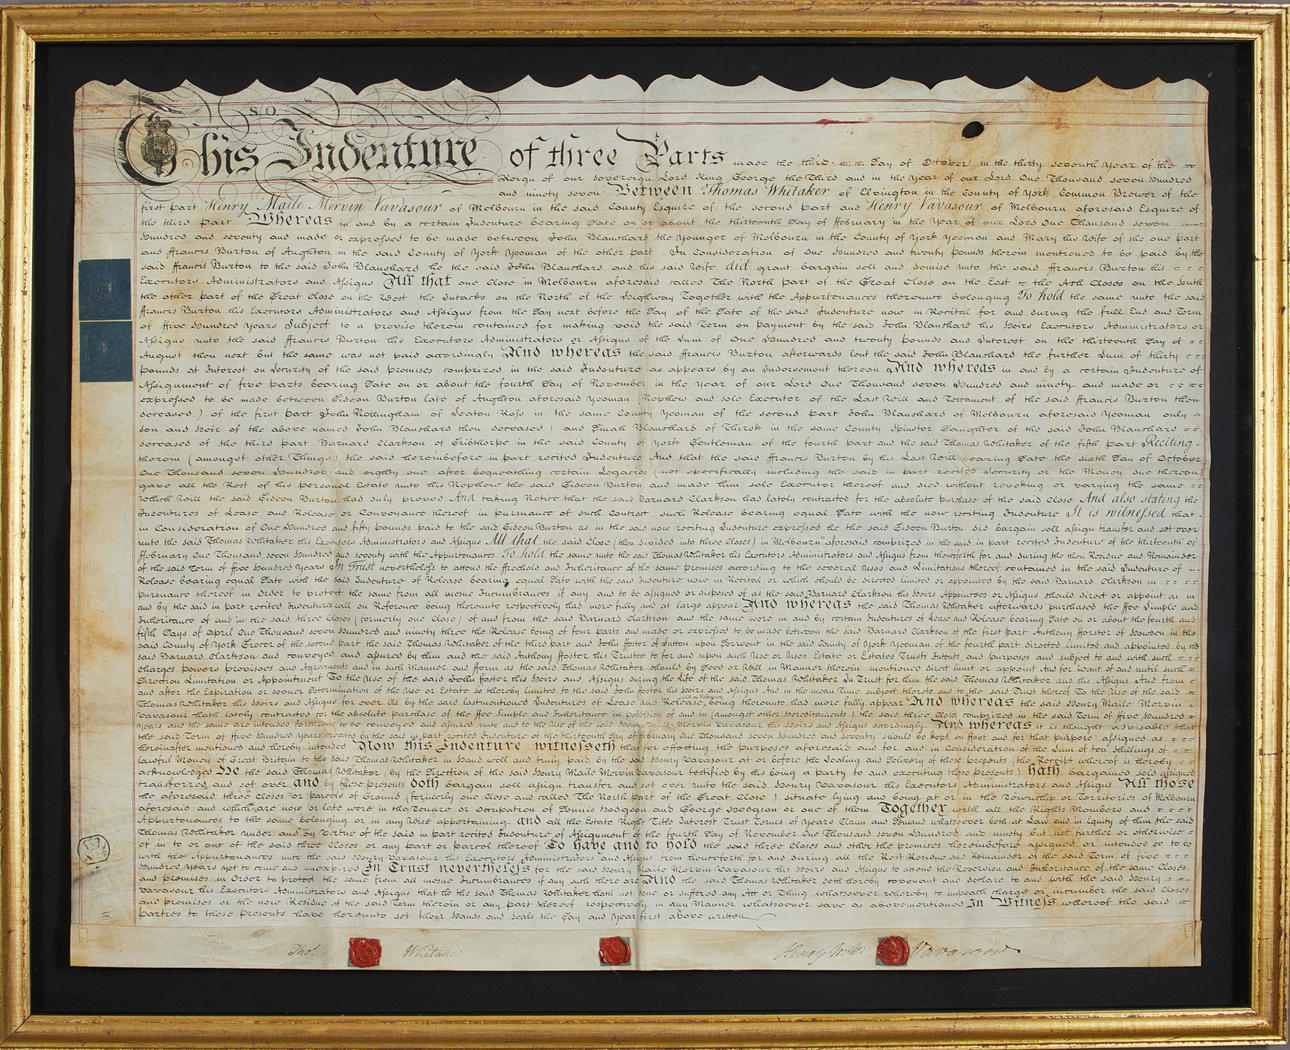 This Indenture of three Parts made the third Day of October in the thirty seventh Year of the
Reign of our sovereign Lord King George the Third and in the Year of our Lord One Thousand seven hundred
and ninety seven Between Thomas Whitaker of Elvington in the County of York Common Brewer of the
first part Henry Maile Mervin Vavasour of Melbourn in the said County Esquire of the second part and Henry Vavasour of Melbourn aforesaid Esquire of
the third part Whereas in and by a certain Indenture bearing Date on or about the thirteenth Day of ffebruary in the Year of our Lord One Thousand seven
hundred and seventy and made or expressed to be made between John Blanshard the Younger of Melbourn in the County of York Yeoman and Mary his Wife of the one part
and ffrancis Burton of Aughton in the said County of York Yeoman of the other part In Consideration of One hundred and twenty pounds therein mentioned to be paid by the
said ffrancis Burton to the said John Blanshard he the said John Blanshard and his said Wife did grant bargain sell and demise unto the said ffrancis Burton his
Executors Administrators and Assigns All that one close in Melbourn aforesaid called The North part of the Great Close on the East the Ash Closes on the South
the other part of the Great Close on the West the Intacks on the North of the Highway Together with the Appurtenances thereunto belonging To hold the same unto the said
ffrancis Burton his Executors Administrators and Assigns from the Day next before the Day of the Date of the said Indenture now in Recital for and during the full End and Term
of five hundred Years Subject to a proviso therein contained for making void the said Term on payment by the said John Blanshard his Heirs Executors Administrators or
Assigns unto the said ffrancis Burton his Executors Administrators or Assigns of the Sum of One hundred and twenty pounds and Interest on the thirteenth Day of
August then next but the same was not paid accordingly And whereas the said ffrancis Burton afterwards lent the said John Blanshard the further Sum of thirty
pounds at Interest on Security of the said premises comprized in the said Indenture as appears by an Indorsement thereon And whereas in and by a certain Indenture of
Assignment of five parts bearing Date on or about the fourth Day of November in the Year of our Lord One Thousand seven hundred and ninety and made or
expressed to be made between Gideon Burton late of Aughton aforesaid Yeoman Nephew and sole Executor of the Last Will and Testament of the said ffrancis Burton then
deceased) of the first part John Rollingham of Seaton Ross in the same County Yeoman of the second part John Blanshard of Melbourn aforesaid Yeoman only
son and Heir of the above named John Blanshard then deceased) and Dinah Blanshard of Thirsk in the same County Spinster Daughter of the said John Blanshard
deceased of the third part Barnard Clarkson of Gribthorpe in the said County of York Gentleman of the fourth part and the said Thomas Whitaker of the fifth part Reciting
therein (amongst other Things) the said hereinbefore in part recited Indenture And that the said ffrancis Burton by his Last Will bearing Date the sixth Day of October
One Thousand seven hundred and eighty one after bequeathing certain Legacies (not specifically including the said in part recited Security or the Money due thereon)
gave all the Rest of his personal Estate unto his Nephew the said Gideon Burton and made him sole Executor thereof and died without revoking or varying the same
which Will the said Gideon Burton had duly proved And taking Notice that the said Barnard Clarkson has lately contracted for the absolute purchase of the said Close And also stating the
Indentures of Lease and Release or Conveyance thereof in pursuance of such Contract such Release bearing equal Date with the now reciting Indenture It is witnessed that
in Consideration of One hundred and fifty pounds paid to the said Gideon Burton as in the said now reciting Indenture expressed he the said Gideon Burton did bargain sell assign transfer and set over
unto the said Thomas Whitaker his Executors Administrators and Assigns All that the said Close (then divided into three Closes) in Melbourn aforesaid comprized in the said in part recited Indenture of the thirteenth of
ffebruary One Thousand seven hundred and seventy with the Appurtenances To hold the same unto the said Thomas Whitaker his Executors Administrators and Assigns from thenceforth for and during the then Residue and Remainder
of the said Term of five hundred Years In Trust nevertheless to attend the ffreehold and Inheritance of the same premises according to the several Uses and Limitations thereof contained in the said Indenture of
Release bearing equal Date with the said Indenture of Release bearing equal Date with the said Indenture now in Recital or which should be directed limited or appointed by the said Barnard Clarkson in
pursuance thereof in Order to protect the same from all mesne Incumbrances if any and to be assigned or disposed of as the said Barnard Clarkson his Heirs Appointees or Assigns should direct or appoint as in
and by the said in part recited Indenture will on Reference being thereunto respectively had more fully and at large appear And whereas the said Thomas Whitaker afterwards purchased the ffee Simple and
Inheritance of and in the said three Closes (formerly one Close) of and from the said Barnard Clarkson and the same were in and by certain Indentures of Lease and Release bearing Date on or about the fourth and
fifth Days of April One Thousand seven hundred and ninety three the Release being of four parts and made or expressed to be made between the said Barnard Clarkson of the first part Anthony fforster of Howden in the
said County of York Grocer of the second part the said Thomas Whitaker of the third part and John foster of Sutton upon Derwent in the said County of York Yeoman of the fourth part directed limited and appointed by the
said Barnard Clarkson and conveyed and assured by him and the said Anthony fforster this Trustee to for and upon such Use or Uses Estate or Estates Trusts Intents and purposes and subject to and with such
charges powers provisoes and Agreements and in such Manner and fform as the said Thomas Whitaker should by Deed or Will in Manner therein mentioned direct limit or appoint And for want of and until such
Direction Limitation or Appointment To the Use of the said John foster his Heirs and Assigns during the Life of the said Thomas Whitaker In Trust for him the said Thomas Whitaker and his Assigns And from
and after the Expiration or sooner Determination of the Use or Estate so thereby limited to the said John foster his Heirs and Assigns And in the mean Time subject thereto and to the said Trust thereof To the Use of the said
Thomas Whitaker his Heirs and Assigns for ever As by the said last mentioned Indentures of Lease and Release, being thereunto had more fully appear And whereas the said Henry Maile Mervin
Vavasour hath lately contracted for the absolute purchase of the ffee Simple and Inheritance in possession of and in (amongst other hereditaments) the said three Closes comprized in the said Term of ffive hundred
Years and the same are intended forthwith to be conveyed and assured unto and to the Use of the said Henry Maile Mervin Vavasour his Heirs and Assigns accordingly And whereas it is thought adviseable that
the said Term of ffive hundred Years created by the said in part recited Indenture of the thirteenth Day of ffebruary One Thousand seven hundred and seventy should be kept on foot and for that purpose assigned as
hereinafter mentioned and thereby intended Now this Indenture witnesseth that for effecting the purposes aforesaid and for and in Consideration of the Sum of ten Shillings of
lawful Money of Great Britain to the said Thomas Whitaker in Hand well and truly paid by the said Henry Vavasour at or before the Sealing and Delivery of these presents (the Receipt whereof is hereby
acknowledged) He the said Thomas Whitaker (by the Direction of the said Henry Maile Mervin Vavasour testified by his being a party to and executing these presents) hath bargained sold assigned
transferred and set over and by these presents doth bargain sell assign transfer and set over unto the said Henry Vavasour his Executors Administrators and Assigns All those
the aforesaid three Closes or parcels of Ground (formerly one Close and called The North part of the Great Close) situate lying and being at or in the Township or Territories of Melbourn
aforesaid and which are now or late were in the Tenure or Occupation of Dennis Hodgson and George Hodgson or one of them Together with all the Rights Members and
Appurtenances to the same belonging or in any Wise appertaining and all the Estate Right Title Interest Trust Terms of Years Claim and Demand whatsoever both at Law and in Equity of him the said
Thomas Whitaker under and by Virtue of the said in part recited Indenture of Assignment of the fourth Day of November One Thousand seven hundred and ninety but not further or otherwise
of in to or out of the said three Closes or any part or parcel thereof To have and to hold the said three Closes and other the premises hereinbefore assigned or intended so to be
with the Appurtenances unto the said Henry Vavasour his Executors Administrators and Assigns from henceforth for and during all the Rest Residue and Remainder of the said Term of five
hundred Years yet to come and unexpired In Trust nevertheless for the said Henry Maile Mervin Vavasour his Heirs and Assigns to attend the Reversion and Inheritance of the same Closes
and premises in Order to protect the same from all mesne Incumbrances if any such there are And the said Thomas Whitaker doth hereby covenant and declare to and with the said Henry
Vavasour his Executors Administrators and Assigns that he the said Thomas Whitaker hath not done or suffered any Act or Thing whatsoever whereby to impeach charge or incumber the said Closes
and premises or the now Residue of the said Term therein or any part thereof respectively in any Manner whatsoever save as abovementioned In Witness whereof the said
parties to these presents have hereunto set their Hands and Seals the Day and Year first above written
Thos. Whitaker Henry Vavasour